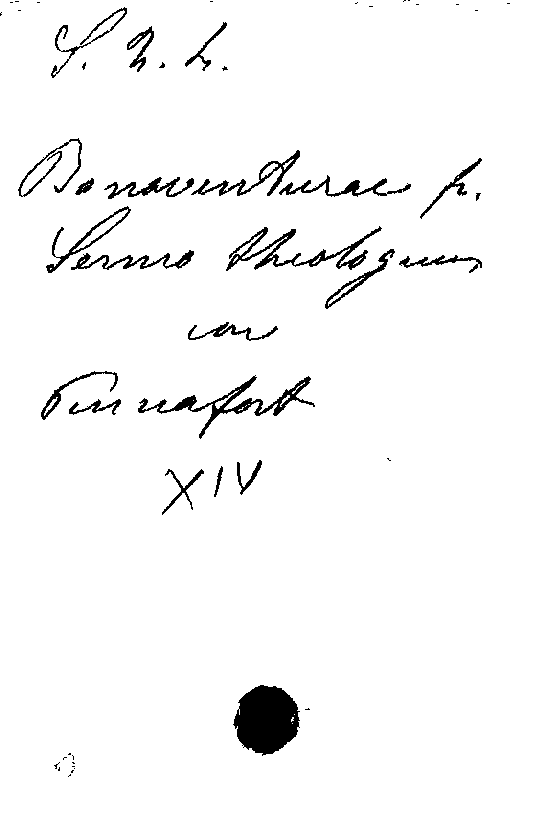 S. n. L.
Bonaventurae fr.
Sermo theologicus
Pinnafort
XIV